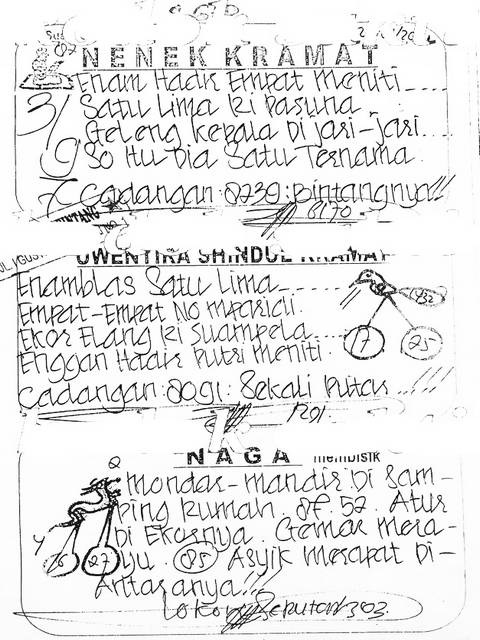 87
NENEK KRAMAT
Enam Hadir Empat Meniti
3/9 Satu Lima Ki Pasuna
Geleng Kepala Di jari-jari
So Hu Dia Satu Ternama
Cadangan: 8739: Bintangnya!!
8170
UWENTIRA SHINDUE KRAMAT
Enamblas Satu Lima
Empat-Empat No
Ekor Elang Ki Suampela
Enggan Hadir Putri Meniti
17 25
Cadangan: 8091: Sekali Putar...!!!
1291
NAGA membisik
Mondar-mandir Di Sam-
ping Rumah. 8F. 52. Atur
Di Ekornya. Gemar Mera-
yu. 85 Asyik Merapat Di-
Antaranya!!!
27
Lokon Seputar 303.